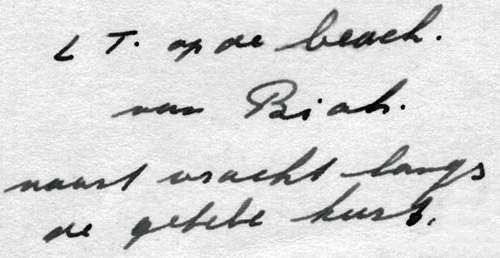 L T. op de beach.
van Biak.
vaart vracht langs
de gehele kust.